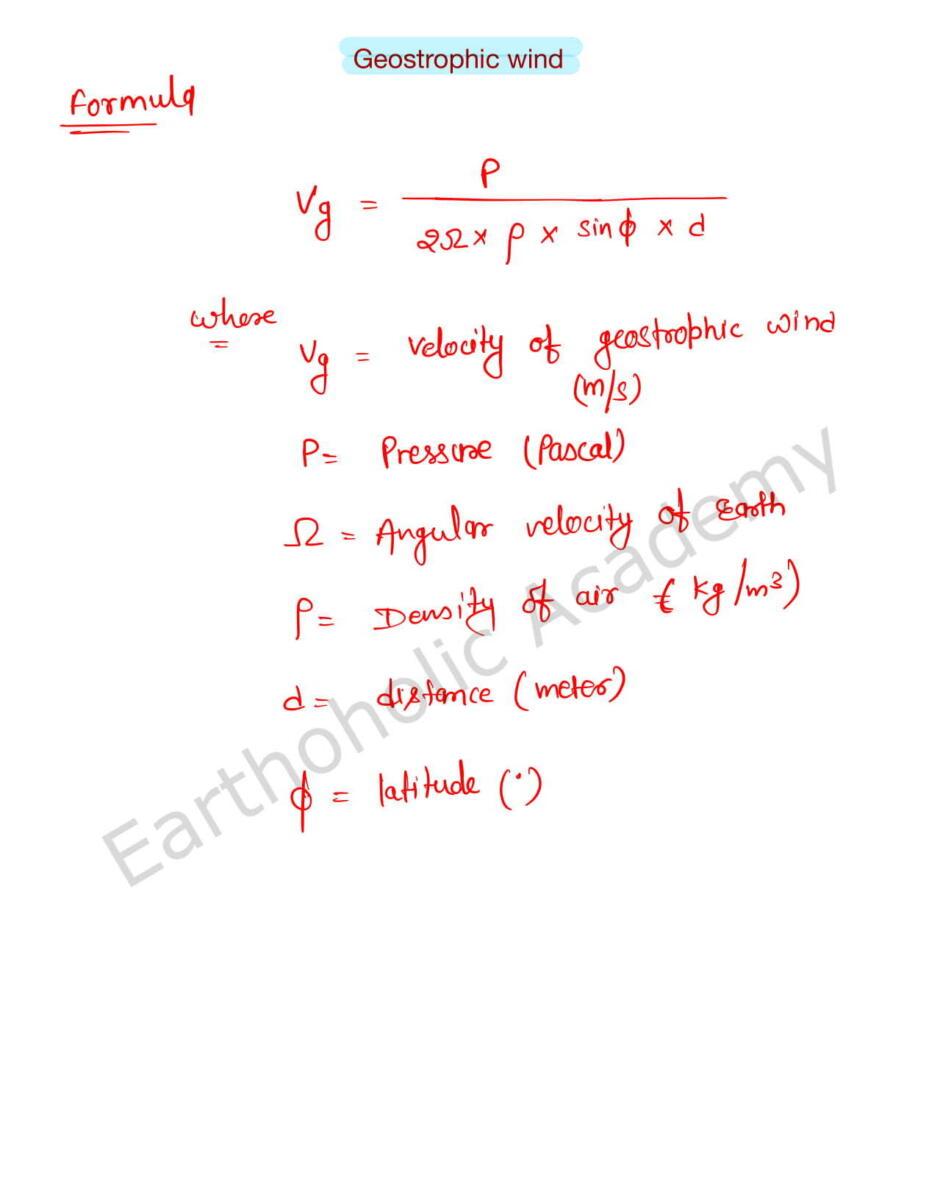 Geostrophic wind
Formula
Vg = P
2Ω × ρ × sin ϕ × d
where
Vg = velocity of geostrophic wind
(m/s)
P = Pressure (Pascal)
Ω = Angular velocity of Earth
ρ = Density of air ( kg/m³)
d = distance (meter)
ϕ = latitude (°)
Earthoholic Academy